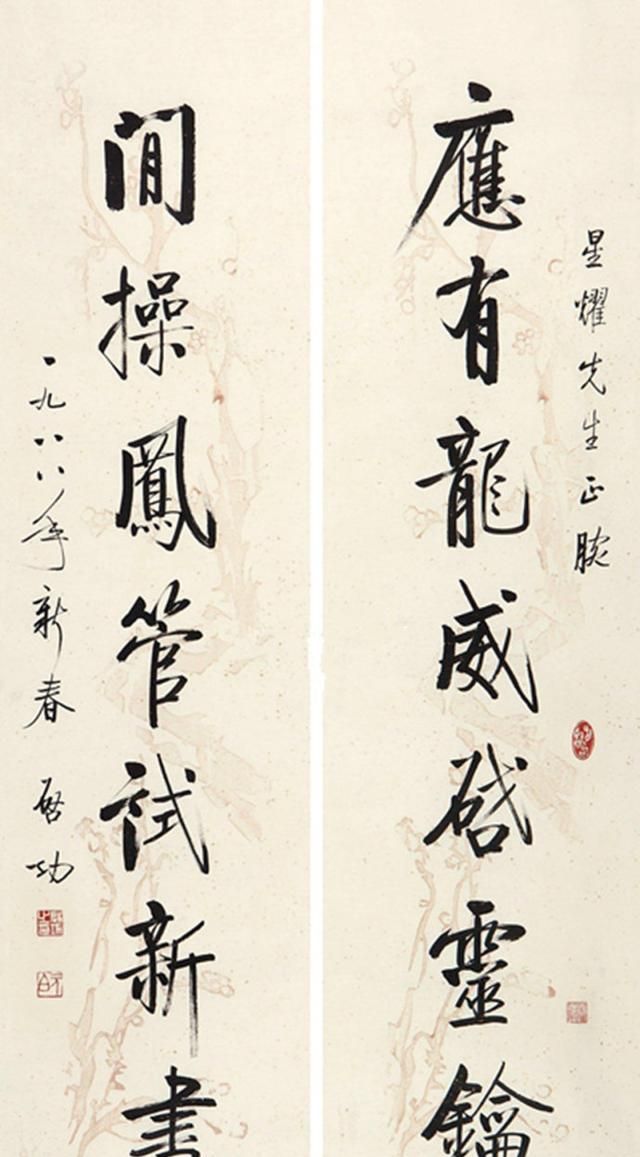 星耀先生正腕
應有龍威啟靈鑰
閒操鳳管試新書
一九八八年新春 啟功